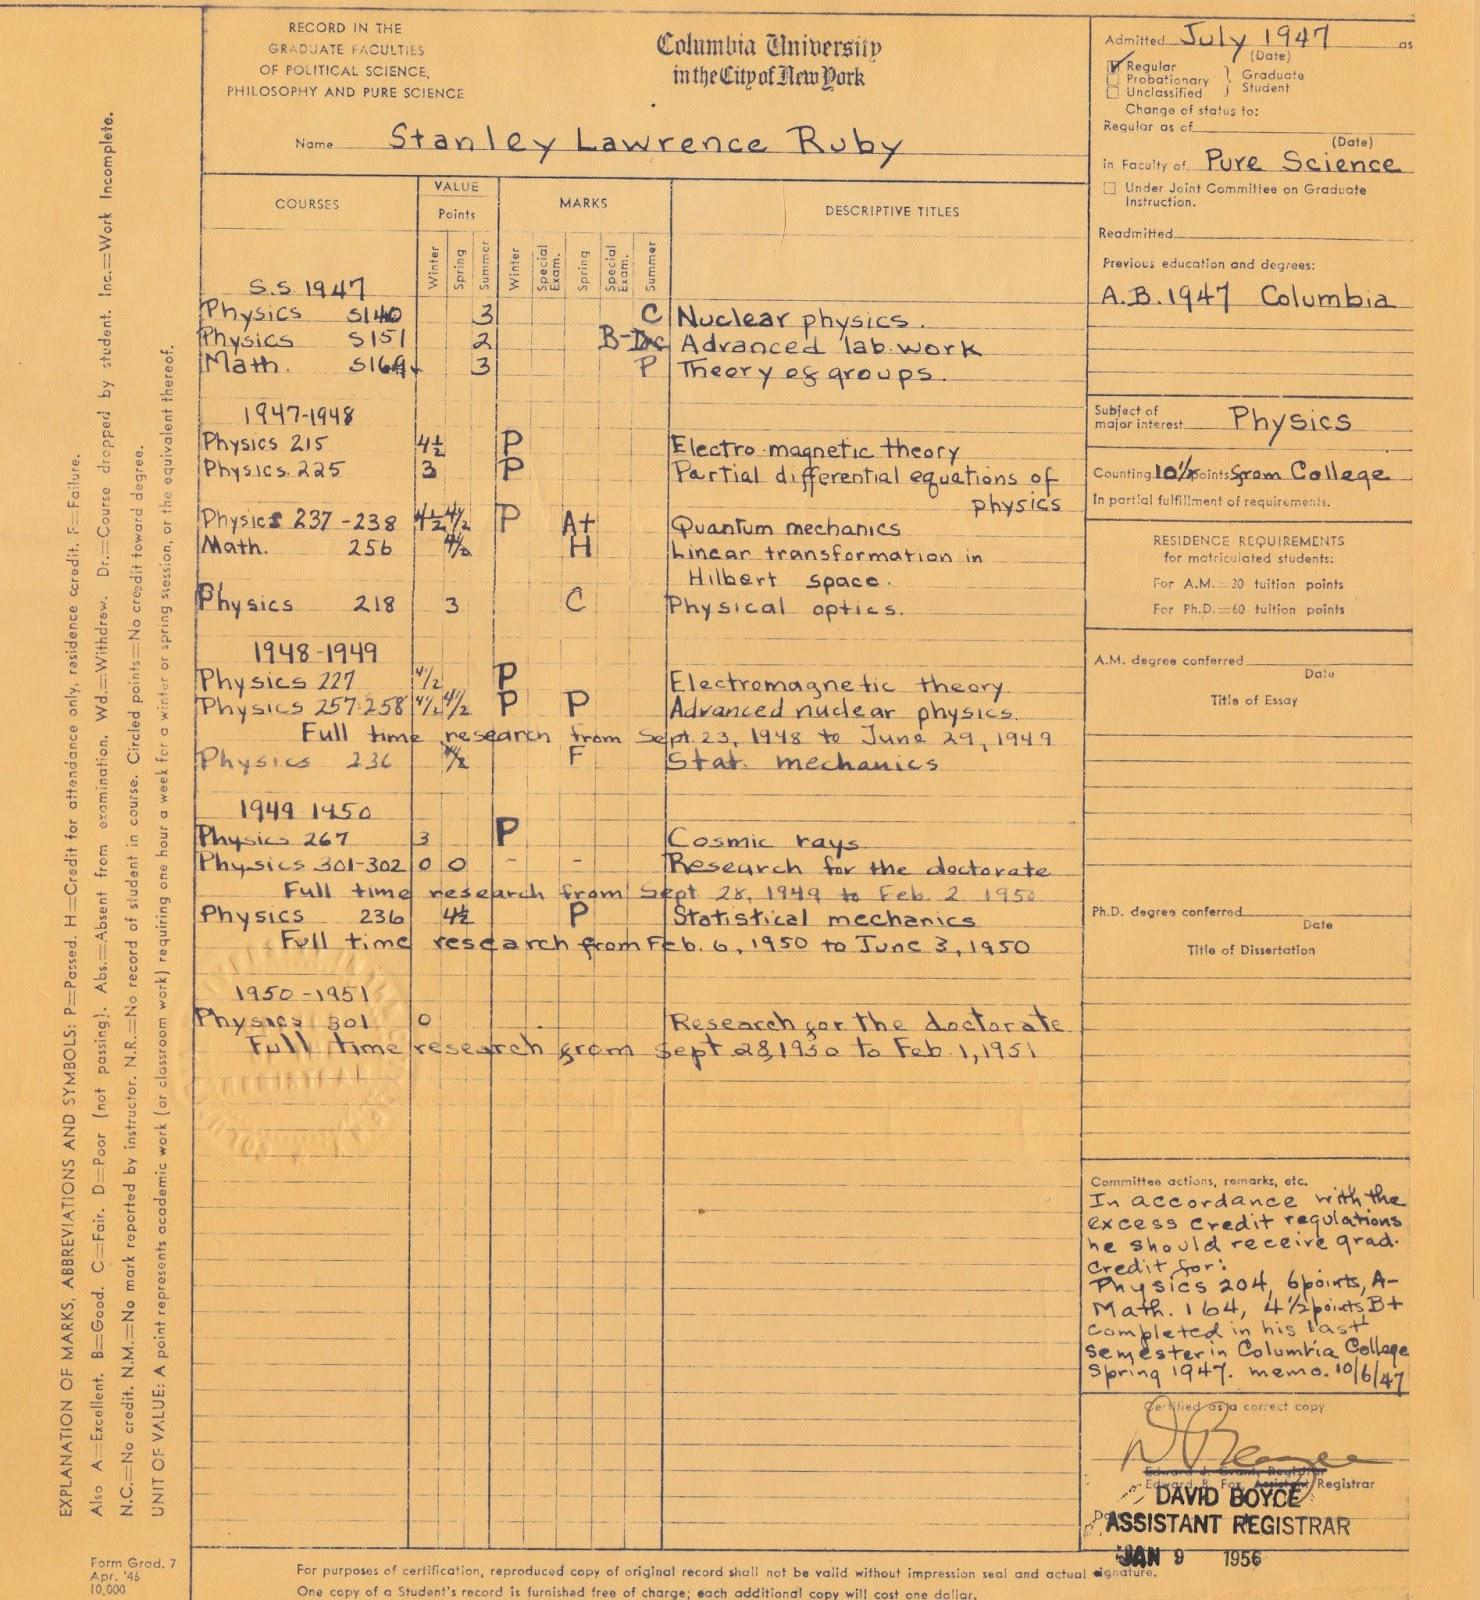 RECORD IN THE
GRADUATE FACULTIES
OF POLITICAL SCIENCE,
PHILOSOPHY AND PURE SCIENCE
Columbia University
in the City of New York
Name Stanley Lawrence Ruby
COURSES VALUE MARKS DESCRIPTIVE TITLES
Points
Winter Spring Summer Winter Special Exam. Spring Special Exam. Summer
S.S. 1947
Physics S140 3 C Nuclear physics.
Physics S151 2 B- Advanced lab. work
Math. 3 P Theory of groups.
1947-1948
Physics 215 4½ P Electro-magnetic theory
Physics. 225 3 P Partial differential equations of
physics
Physics 237-238 4½ 4½ P A+ Quantum mechanics
Math. 256 4½ H Linear transformation in
Hilbert space.
Physics 218 3 C Physical optics.
1948-1949
Physics 227 4½ P Electromagnetic theory
Physics 257-258 4½ 4½ P P Advanced nuclear physics.
Full time research from Sept. 23, 1948 to June 29, 1949
Physics 236 4½ F Stat. mechanics
1949-1950
Physics 267 3 P Cosmic rays
Physics 301-302 0 0 - - Research for the doctorate
Full time research from Sept 28, 1949 to Feb. 2 1950
Physics 236 4½ P Statistical mechanics
Full time research from Feb. 6, 1950 to June 3, 1950
1950-1951
Physics 301 0 Research for the doctorate
Full time research from Sept 28, 1950 to Feb. 1, 1951
Admitted July 1947 as
(Date)
Regular
Probationary
Unclassified
Graduate
Student
Change of status to:
Regular as of
(Date)
in Faculty of Pure Science
Under Joint Committee on Graduate
Instruction.
Readmitted
Previous education and degrees:
A.B. 1947 Columbia
Subject of
major interest Physics
Counting 10½ points from College
In partial fulfillment of requirements.
RESIDENCE REQUIREMENTS
for matriculated students:
For A.M.—30 tuition points
For Ph.D.—60 tuition points
A.M. degree conferred
Date
Title of Essay
Ph.D. degree conferred
Date
Title of Dissertation
Committee actions, remarks, etc.
In accordance with the
excess credit regulations
he should receive grad.
credit for:
Physics 204, 6 points, A-
Math. 164, 4½ points B+
completed in his last
semester in Columbia College
Spring 1947. memo. 10/6/47
Certified as a correct copy
Edward J. Grant, Registrar
Edward B. Fox, Assistant Registrar
DAVID BOYCE
ASSISTANT REGISTRAR
JAN 9 1956
EXPLANATION OF MARKS, ABBREVIATIONS AND SYMBOLS: P=Passed. H=Credit for attendance only, residence credit. F=Failure.
Also A=Excellent. B=Good. C=Fair. D=Poor (not passing). Abs.=Absent from examination. Wd.=Withdrew. Dr.=Course dropped by student. Inc.=Work Incomplete.
N.C.=No credit. N.M.=No mark reported by instructor. N.R.=No record of student in course. Circled points=No credit toward degree.
UNIT OF VALUE: A point represents academic work (or classroom work) requiring one hour a week for a winter or spring session, or the equivalent thereof.
Form Grad. 7
Apr. '46
10,000
For purposes of certification, reproduced copy of original record shall not be valid without impression seal and actual signature.
One copy of a Student's record is furnished free of charge; each additional copy will cost one dollar.